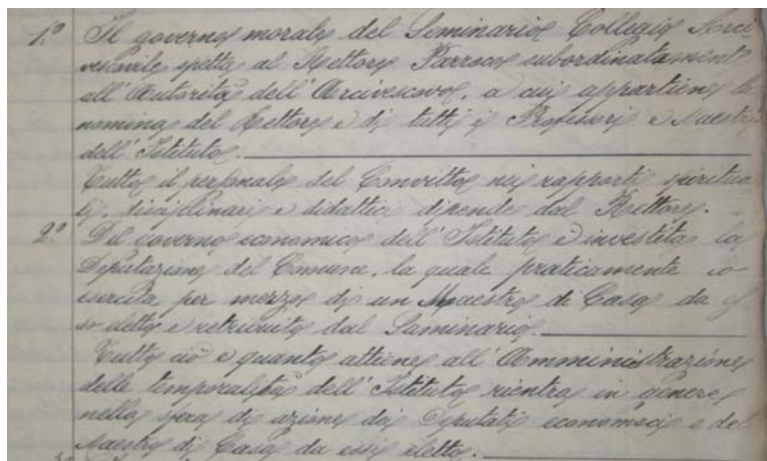 1.º Il governo morale del Seminario Collegio Arci
vescovile spetta al Rettore Parroco subordinatament
all'Autorità dell'Arcivescovo, a cui appartiene la
nomina del Rettore e di tutti i Professori e Maestri
dell'Istituto.
Tutto il personale del Convitto nei rapporti spiritua
li, disciplinari e didattici dipende dal Rettore.
2.º Del governo economico dell'Istituto è investita la
Deputazione del Comune, la quale praticamente lo
esercita per mezzo di un Maestro di Casa da es
so eletto e retribuito dal Seminario.
Tutto ciò e quanto attiene all'Amministrazione
delle temporalità dell'Istituto rientra in genere
nella sfera di azione dei Deputati economici e del
Maestro di Casa da essi eletto.